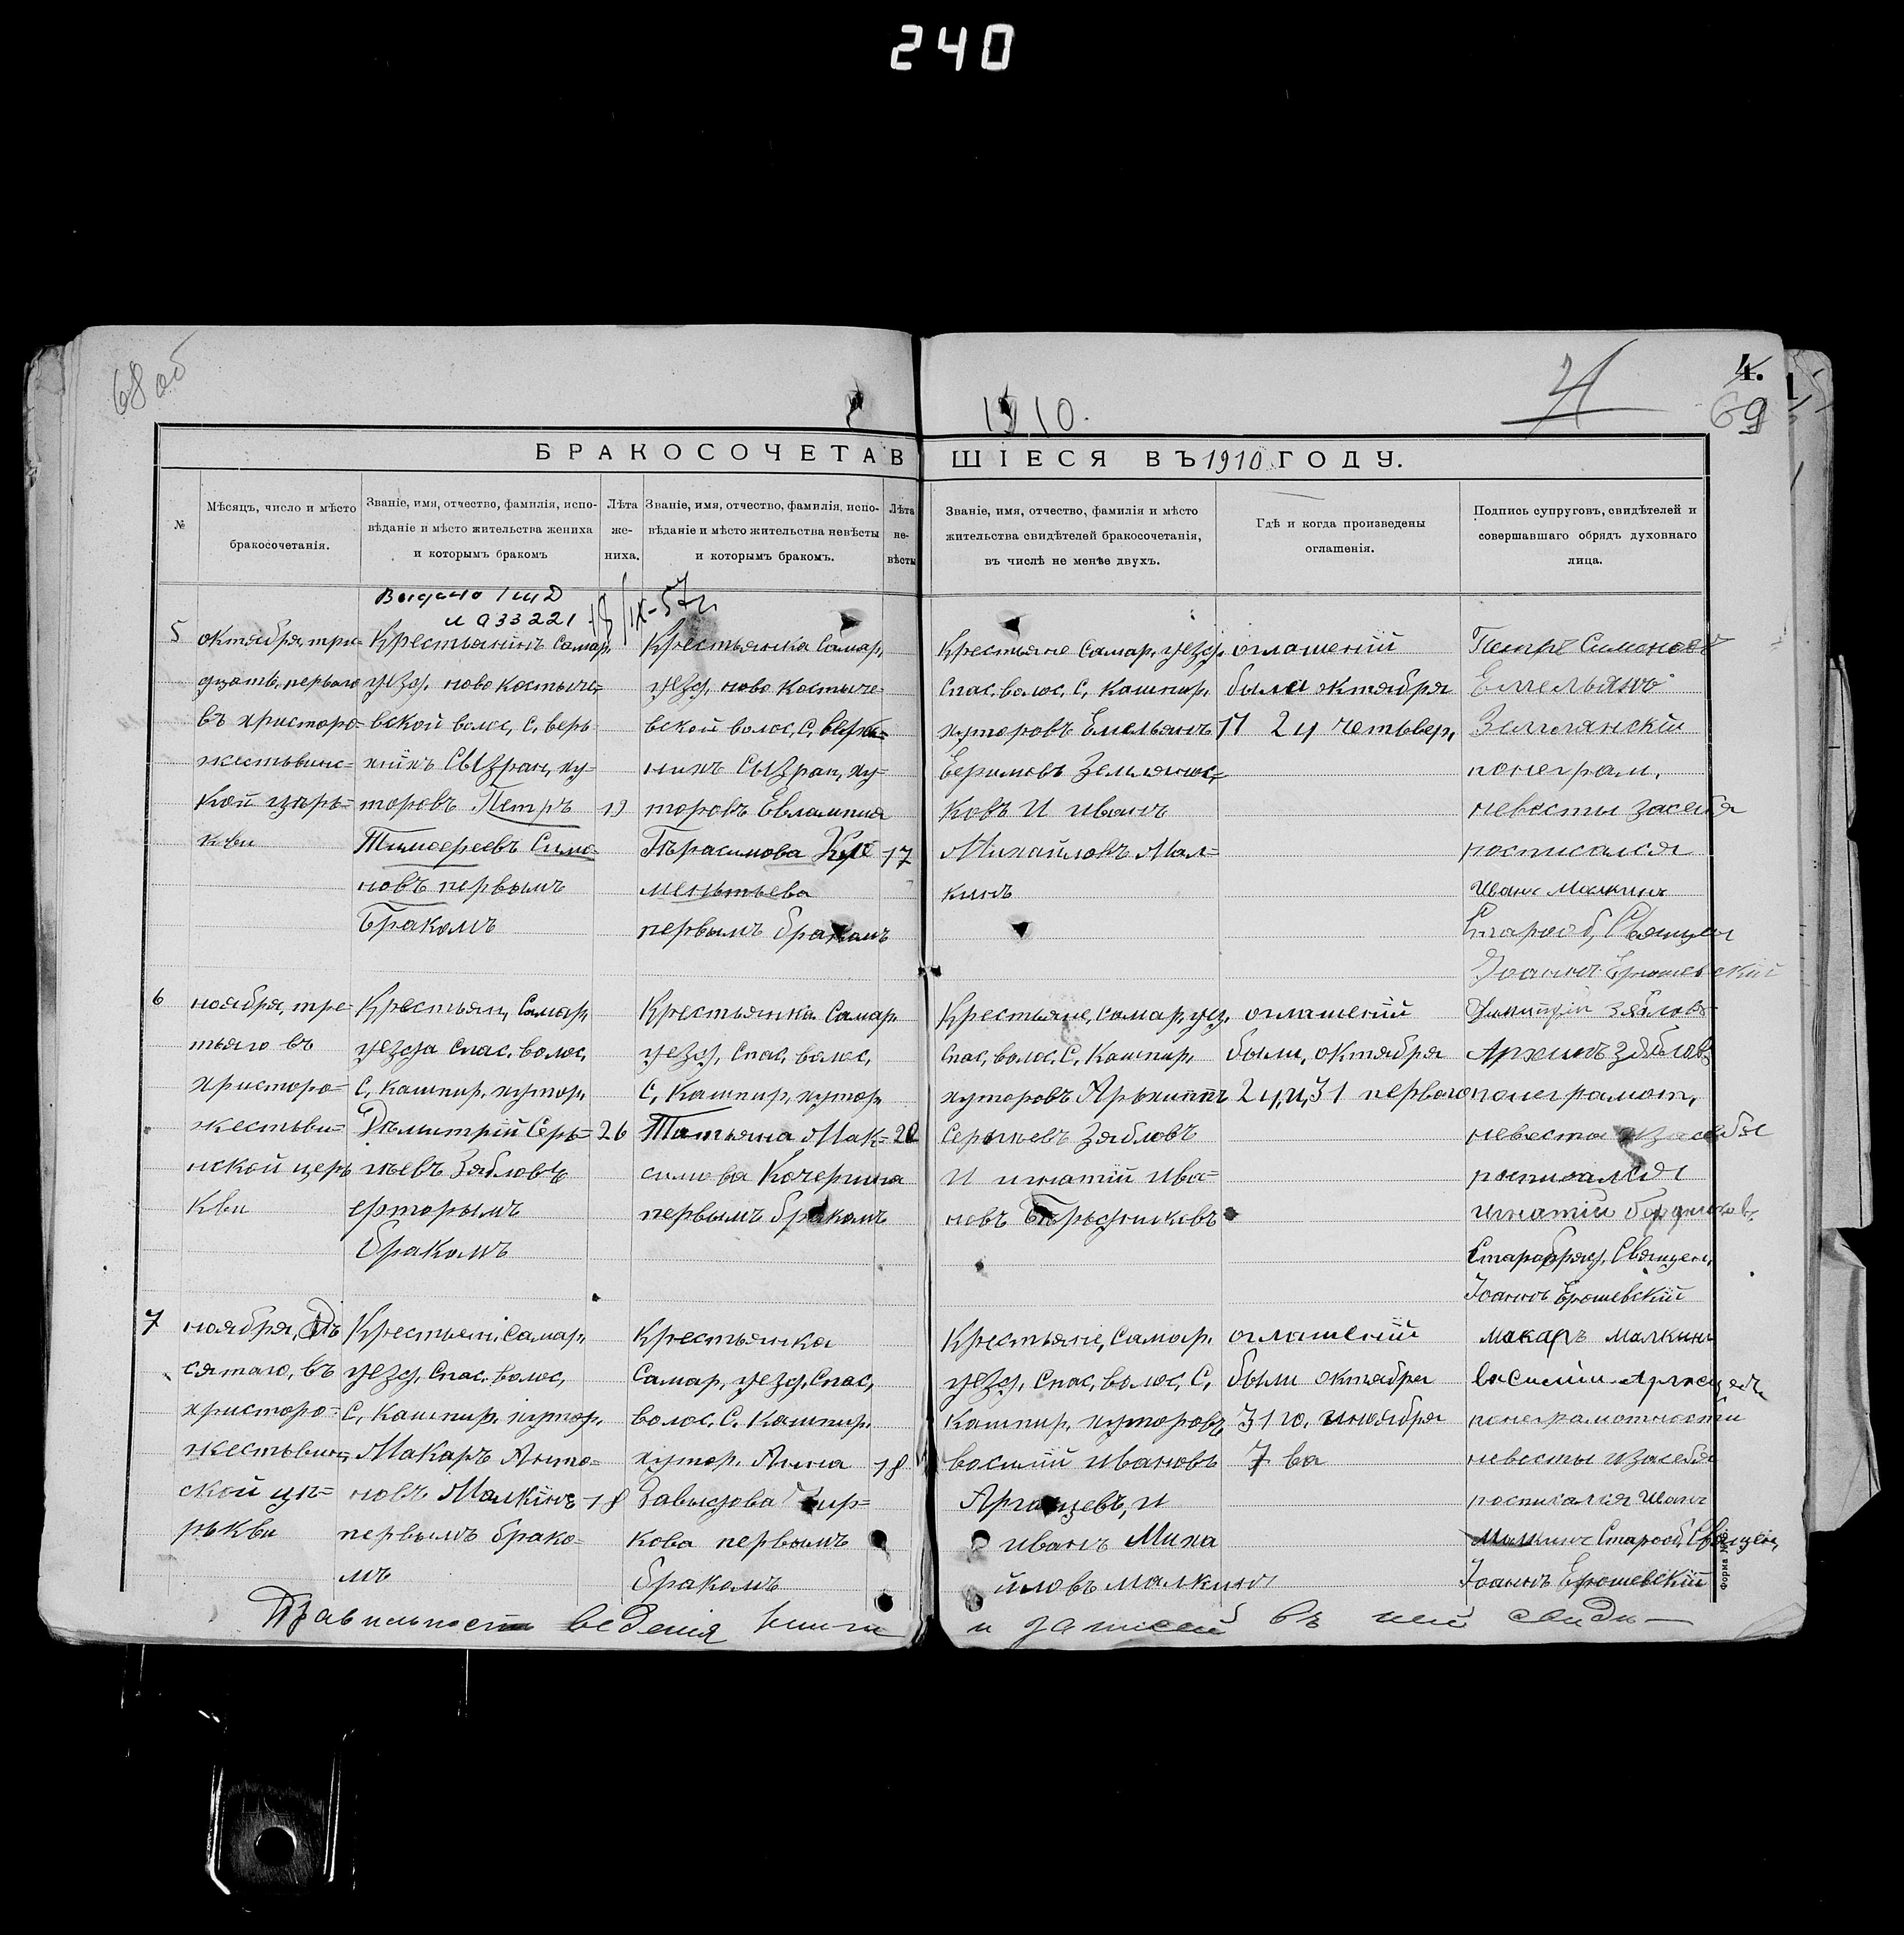 240
68 об
1910.
4.
69
БРАКОСОЧЕТАВШІЕСЯ ВЪ 1910 ГОДУ.
№
Мѣсяцъ, число и мѣсто
бракосочетанія.
Званіе, имя, отчество, фамилія, испо-
вѣданіе и мѣсто жительства жениха
и которымъ бракомъ
Лѣта
же-
ниха.
Званіе, имя, отчество, фамилія, испо-
вѣданіе и мѣсто жительства невѣсты
и которымъ бракомъ.
Лѣта
не-
вѣсты
Званіе, имя, отчество, фамилія и мѣсто
жительства свидѣтелей бракосочетанія,
въ числѣ не менѣе двухъ.
Гдѣ и когда произведены
оглашенія.
Подпись супруговъ, свидѣтелей и
совершавшаго обрядъ духовнаго
лица.
5
октября, три-
дцать, перваго
въ христоро-
жествинс-
кой церь-
кви
Выдано
033221
Крестьянинъ Самар.
уезд. ново Костыче-
вской волос, с, верь
хнихъ Сызран, ху-
торовъ Петръ
Тимоереевъ Симо-
новъ первымъ
бракомъ
19
Крестьянка Самар,
уезд. ново Костыче
вской волос, с,
нихъ Сызран, ху-
торовъ Евлампия
Герасимова
ментьева
первымъ бракомъ
17
Крестьяне Самар, уезд.
Спас, волос, с, Кашпир.
хуторовъ Емельянъ
Ееримовъ Землянос-
ковъ И иванъ
Михайловъ Мал-
кинъ
оглашений
были октября
17 24 четьвер,
Петръ Симоновъ
Емельянъ
понеграм.
невесты засебя
росписался
Иванъ Малкинъ
Старооб, Священ
Иоаннъ Ерошевский
6
ноября, тре-
тьяго въ
христоро-
жестьви-
нской церь
кви
Крестьян, Самар,
уезда Спас. волос,
С, Кашпир, хутор,
Дъмитрий Серь-
гъевъ Зябловъ
ефторымъ
бракомъ
26
Крестьянка Самар,
уезд, Спас, волос,
С, Кашпир, хутор,
Татьяна Мак-
симова Кочергина
первымъ бракомъ
Крестьяне, Самар, уез,
Спас, волос, С, Кашпир,
хуторовъ Арьхиппъ
Серьгъевъ Зябловъ
И игнатий Ива-
новъ Берьдниковъ
оглашений
были, октября
24, и, 31 перваго
Архипъ Зябловъ
понеграмот,
невесты изасебя
росписался
игнатий
Старобряд, Священ,
Иоаннъ Ерошевский
7
ноября, Дъ
сятаго, въ
христоро-
жестьвин,
ской це-
рькви
Крестьян, Самар,
уезд, Спас. волос,
С, Кашпир. хутор,
Макаръ Анто-
новъ Малкинъ
первымъ брако-
мъ
18
Крестьянка
Самар, уезд, Спас,
волос, С. Кашпир.
хутор. Анна
Давыдова
кова первымъ
бракомъ
18
Крестьяне, Самар.
уезд, Спас, волос, С,
Кашпир, хуторовъ
василий ивановъ
Аргатцевъ, и
иванъ Миха
йловъ малкинъ
оглашений
были октября
31 го, иноября
7 ва
макаръ малкинъ
василий
понеграмотности
невесты изасебя
росписался Иванъ
Малкинъ Старооб, Священ,
Иоаннъ Ерошевский
Форма №
Правильность веденія книги и записей въ ней свидѣ-